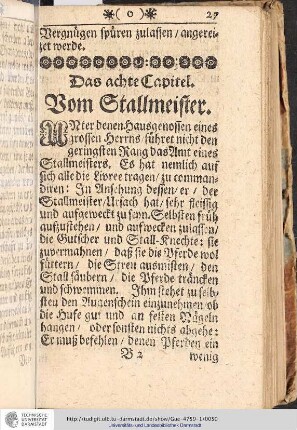 (o) 29
Vergnügen spüren zulassen / angerei-
zet werde.
Das achte Capitel.
Vom Stallmeister.
UNter denen Hausgenossen eines
grossen Herrns / führet nicht den
geringsten Rang das Amt eines
Stallmeisters. Es hat nemlich auf
sich alle die Livree tragen / zu comman-
diren: In Ansehung dessen / er / der
Stallmeister / Ursach hat / sehr fleissig
und aufgeweckt zu seyn. Selbsten früh
aufzustehen / und aufwecken zulassen /
die Gutscher und Stall-Knechte: sie
zuvermahnen / daß sie die Pferde wol
füttern / die Streu ausmisten / den
Stall säubern / die Pferde träncken
und schwemmen. Ihm stehet zu selb-
sten den Augenschein einzunehmen ob
die Hufe gut und an festen Nägeln
hangen / oder sonsten nichts abgehe:
Er muß befehlen / denen Pferden ein
B 2 wenig
TECHNISCHE
UNIVERSITÄT
DARMSTADT
Universitäts- und Landesbibliothek Darmstadt